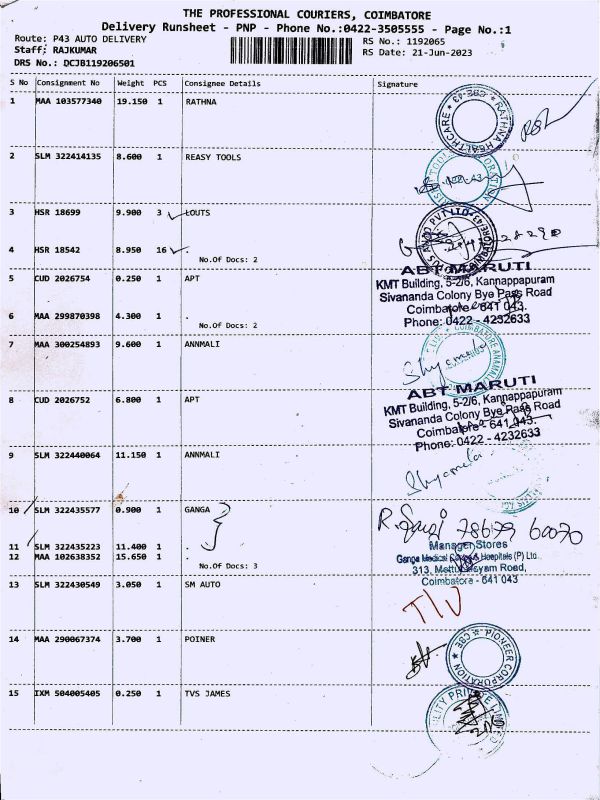 THE PROFESSIONAL COURIERS, COIMBATORE
Delivery Runsheet - PNP - Phone No.:0422-3505555 - Page No.:1
Route: P43 AUTO DELIVERY
Staff: RAJKUMAR
DRS No.: DCJB119206501
RS No.: 1192065
RS Date: 21-Jun-2023
S No Consignment No Weight PCS Consignee Details Signature
1 MAA 103577340 19.150 1 RATHNA
RATHNA HEALTHCARE ★ CBE-43 ★
2 SLM 322414135 8.600 1 REASY TOOLS
3 HSR 18699 9.900 3 LOUTS
4 HSR 18542 8.950 16 .
No.Of Docs: 2
5 CUD 2026754 0.250 1 APT
ABT MARUTI
KMT Building, 5-2/6, Kannappapuram
Sivananda Colony Bye Pass Road
Coimbatore - 641 043.
Phone: 0422 - 4232633
6 MAA 299870398 4.300 1 .
No.Of Docs: 2
7 MAA 300254893 9.600 1 ANNMALI
Shyamela
8 CUD 2026752 6.800 1 APT
ABT MARUTI
KMT Building, 5-2/6, Kannappapuram
Sivananda Colony Bye Pass Road
Coimbatore - 641 043.
Phone: 0422 - 4232633
9 SLM 322440064 11.150 1 ANNMALI
Shyamela
10 SLM 322435577 0.900 1 GANGA
11 SLM 322435223 11.400 1 .
12 MAA 102638352 15.650 1 .
No.Of Docs: 3
Manager Stores
Ganga Medical Hospitals (P) Ltd.
Coimbatore - 641 043
13 SLM 322430549 3.050 1 SM AUTO
14 MAA 290067374 3.700 1 POINER
PIONEER CORPORATION ★ CBE ★
15 IXM 504005405 0.250 1 TVS JAMES